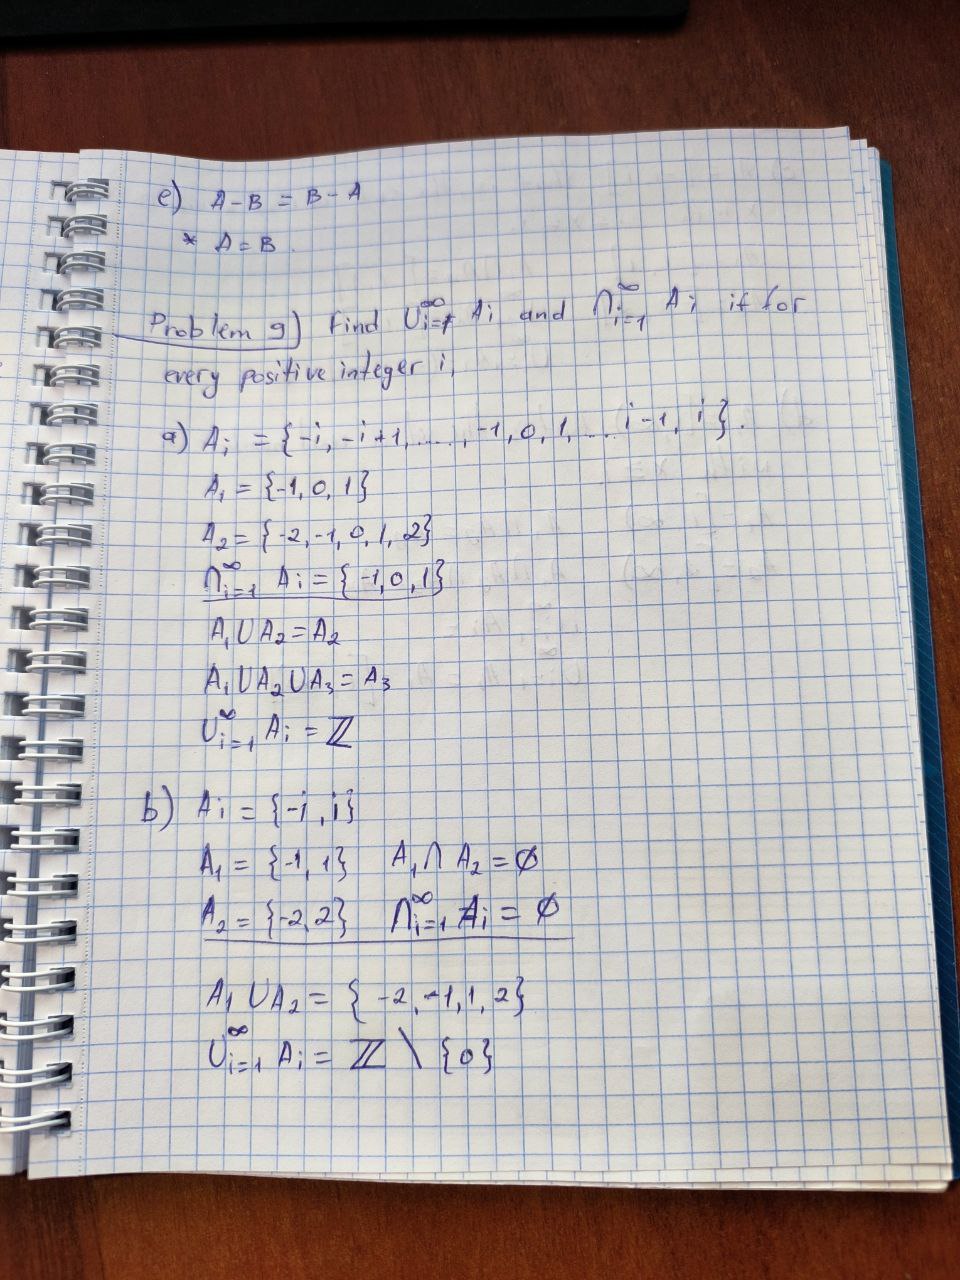 e) A-B = B-A
* A=B.
Problem 9) Find ⋃_{i=1}^∞ Ai and ⋂_{i=1}^∞ Ai if for
every positive integer i,
a) Ai = {-i, -i+1, ....., -1, 0, 1, .... i-1, i}.
A₁ = {-1, 0, 1}
A₂ = {-2, -1, 0, 1, 2}
⋂_{i=1}^∞ Ai = {-1, 0, 1}
A₁ ∪ A₂ = A₂
A₁ ∪ A₂ ∪ A₃ = A₃
⋃_{i=1}^∞ Ai = ℤ
b) Ai = {-i, i}
A₁ = {-1, 1} A₁ ∩ A₂ = ∅
A₂ = {-2, 2} ⋂_{i=1}^∞ Ai = ∅
A₁ ∪ A₂ = {-2, -1, 1, 2}
⋃_{i=1}^∞ Ai = ℤ \ {0}